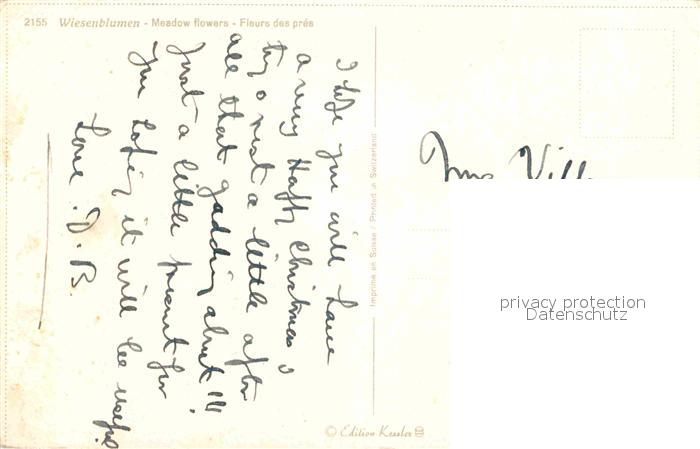 2155 Wiesenblumen - Meadow flowers - Fleurs des prés
I hope you will have
a very Happy Christmas &
try & rest a little after
all that gadding about!!!
Just a little present for
you hoping it will be useful
Love. D. B.
Imprimé en Suisse / Printed in Switzerland
© Edition Kessler
Mrs Vill
privacy protection
Datenschutz